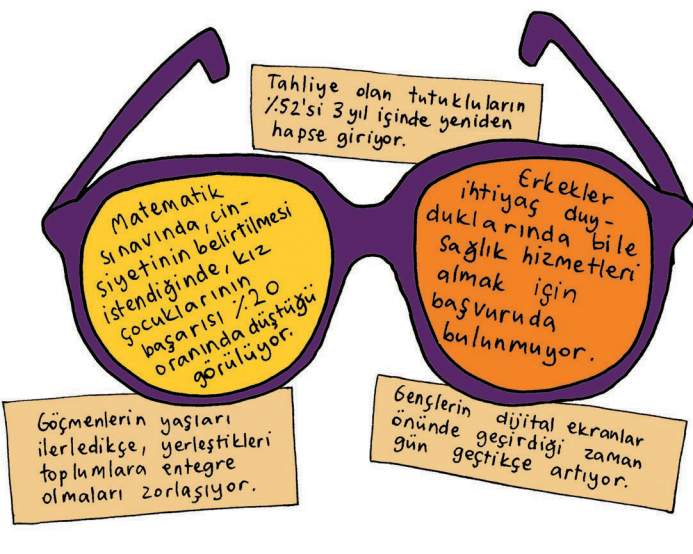 Tahliye olan tutukluların
%52'si 3 yıl içinde yeniden
hapse giriyor.
Matematik
sınavında, cin-
siyetinin belirtilmesi
istendiğinde, kız
çocuklarının
başarısı %20
oranında düştüğü
görülüyor.
Erkekler
ihtiyaç duy-
duklarında bile
sağlık hizmetleri
almak için
başvuruda
bulunmuyor.
Göçmenlerin yaşları
ilerledikçe, yerleştikleri
toplumlara entegre
olmaları zorlaşıyor.
Gençlerin dijital ekranlar
önünde geçirdiği zaman
gün geçtikçe artıyor.